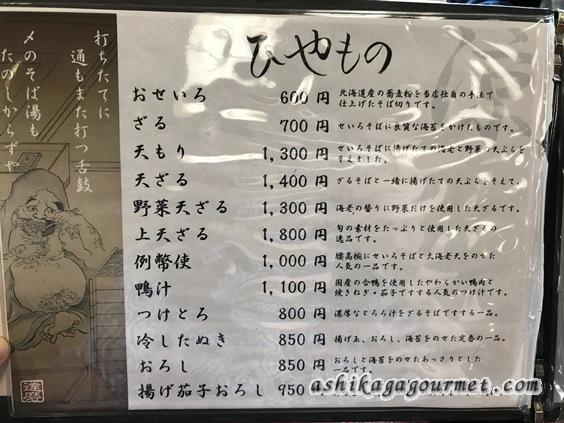 打ちたてに
通もまた打つ舌鼓
〆のそば湯も
たのしからずや
達磨
ひやもの
おせいろ 600円 北海道産の蕎麦粉を当店独自の手法で
仕上げたそば切りです。
ざる 700円 せいろそばに良質な海苔をかけたものです。
天もり 1,300円 せいろそばに揚げたての海老と野菜の天ぷらを
そえました。
天ざる 1,400円 ざるそばと一緒に揚げたての天ぷらをそえて。
野菜天ざる 1,300円 海老の替りに野菜だけを使用した天ざるです。
上天ざる 1,800円 旬の素材をたっぷりと使用した天ざるの
逸品です。
例幣使 1,000円 腰高椀にせいろそばと大海老天をのせた
人気の一品です。
鴨汁 1,100円 国産の合鴨を使用したやわらかい鴨肉と
焼きねぎ・茄子でする人気のつけ汁です。
つけとろ 800円 濃厚なとろろ汁をざるそばでする一品。
冷したぬき 850円 揚げ玉、おろし、海苔をのせた定番の一品。
おろし 850円 おろしと海苔をのせたあっさりとした
一品です。
揚げ茄子おろし 950
ashikagagourmet.com